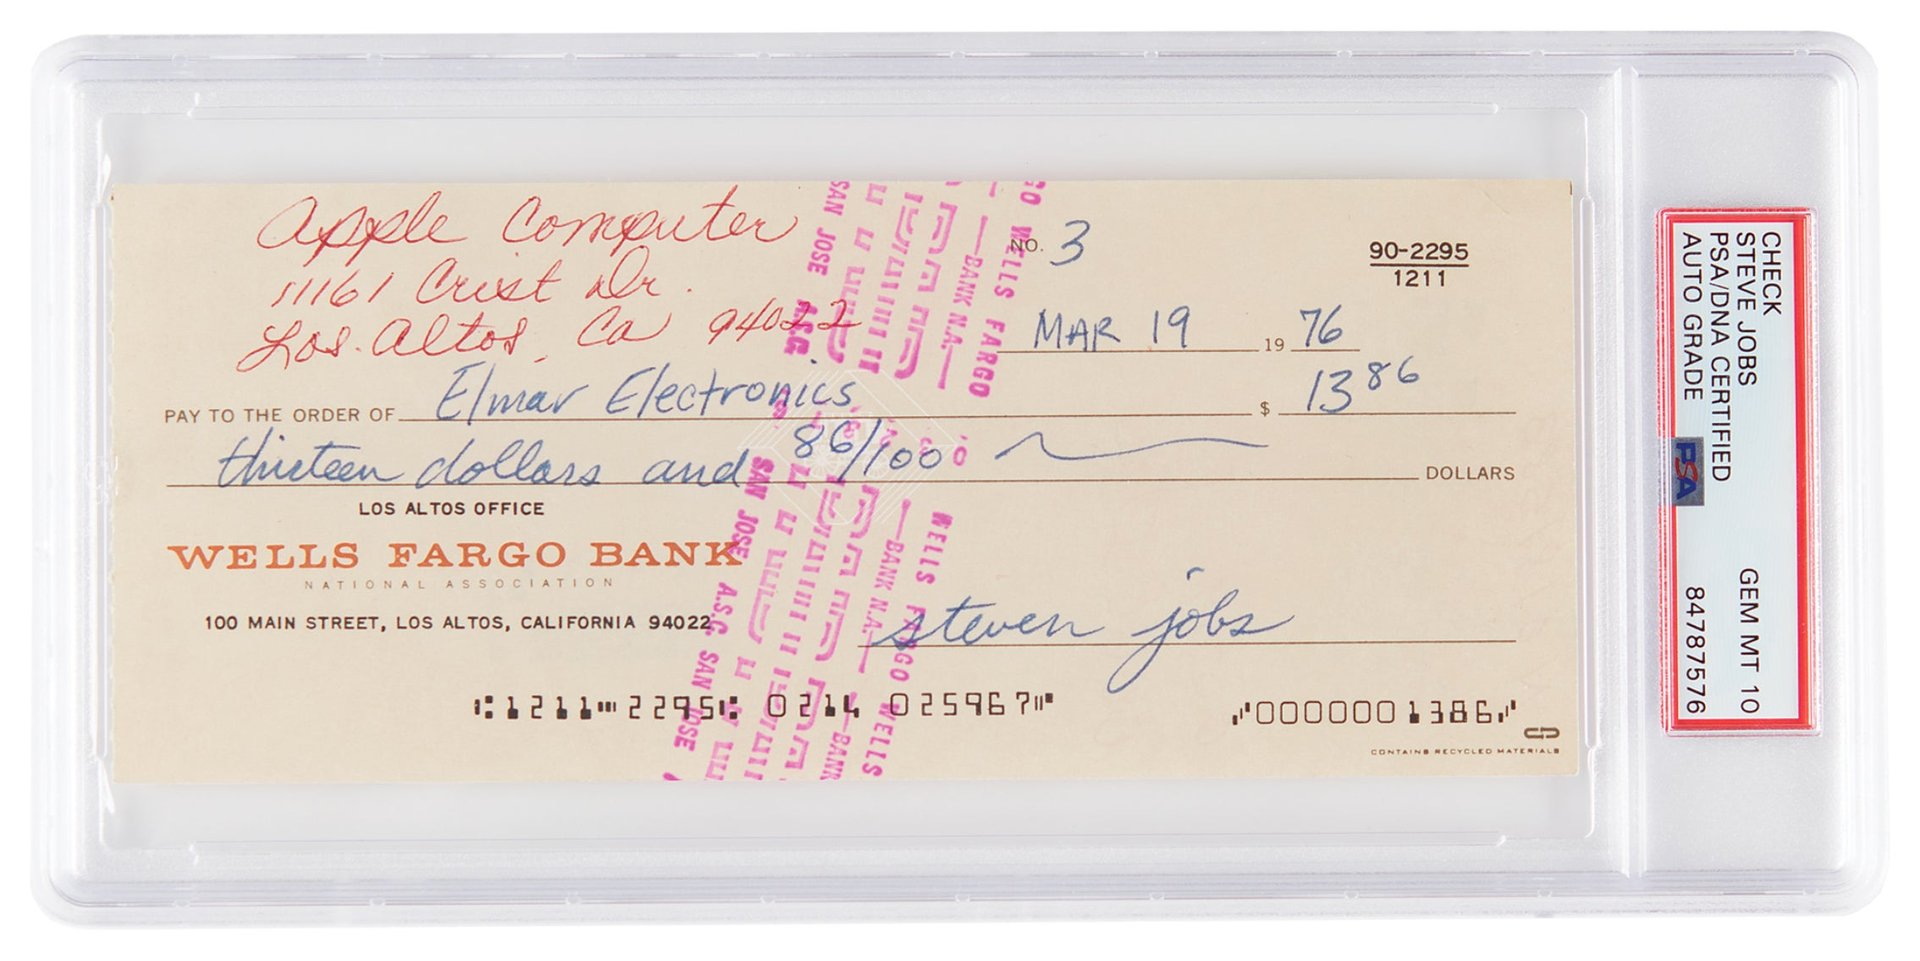 Apple Computer
11161 Crist Dr.
Los Altos, Ca 94022
NO. 3
90-2295
1211
MAR 19 19 76
PAY TO THE ORDER OF Elmar Electronics $ 13 86
thirteen dollars and 86/100 DOLLARS
LOS ALTOS OFFICE
WELLS FARGO BANK
NATIONAL ASSOCIATION
100 MAIN STREET, LOS ALTOS, CALIFORNIA 94022
steven jobs
⑆1211⑉2295⑆ 0214 025967⑈ ⑇0000001386⑇
CONTAINS RECYCLED MATERIALS
WELLS FARGO
BANK N.A.
SAN JOSE A.S.C.
WELLS FARGO WELLS
BANK N.A. BANK
SAN JOSE A.S.C. SAN JOSE
CHECK
STEVE JOBS
PSA/DNA CERTIFIED
AUTO GRADE
GEM MT 10
84787576
PSA